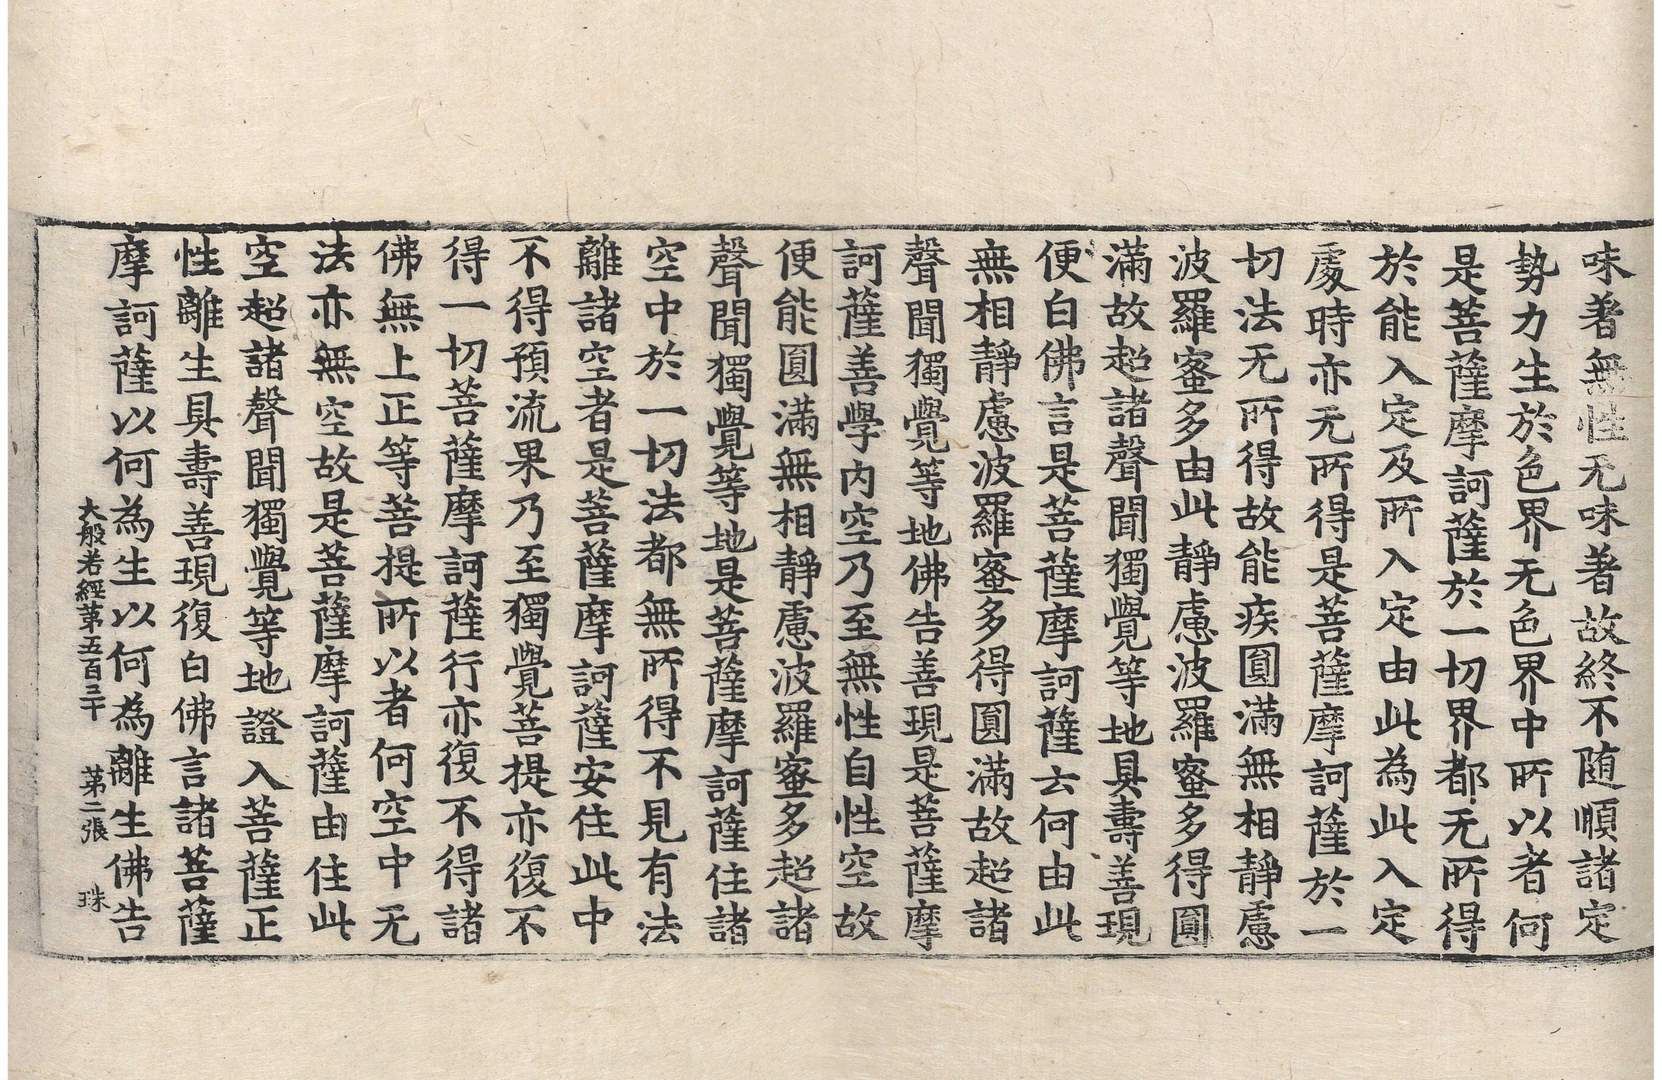 味著無性无味著故終不随順諸定
勢力生於色界无色界中所以者何
是菩薩摩訶薩於一切界都无所得
於能入定及所入定由此為此入定
處時亦无所得是菩薩摩訶薩於一
切法无所得故能疾圓滿無相靜慮
波羅蜜多由此靜慮波羅蜜多得圓
滿故超諸聲聞獨覺等地具壽善現
便白佛言是菩薩摩訶薩云何由此
無相靜慮波羅蜜多得圓滿故超諸
聲聞獨覺等地佛告善現是菩薩摩
訶薩善學内空乃至無性自性空故
便能圓滿無相靜慮波羅蜜多超諸
聲聞獨覺等地是菩薩摩訶薩住諸
空中於一切法都無所得不見有法
離諸空者是菩薩摩訶薩安住此中
不得預流果乃至獨覺菩提亦復不
得一切菩薩摩訶薩行亦復不得諸
佛無上正等菩提所以者何空中无
法亦無空故是菩薩摩訶薩由住此
空超諸聲聞獨覺等地證入菩薩正
性離生具壽善現復白佛言諸菩薩
摩訶薩以何為生以何為離生佛告
大般若經第五百三十 第二張 珠